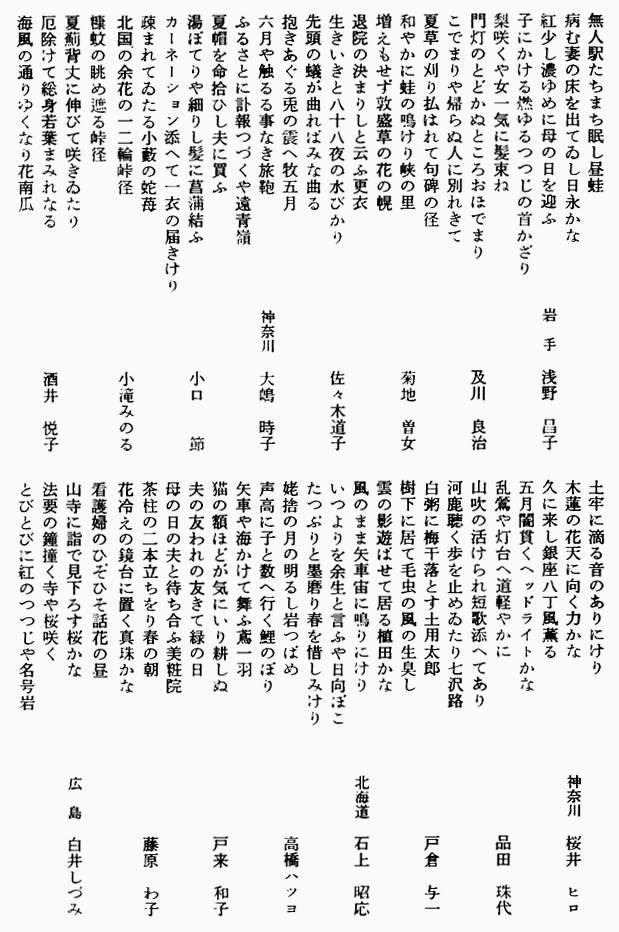 無人駅たちまち眠し昼蛙
病む妻の床を出てゐし日永かな
紅少し濃ゆめに母の日を迎ふ
岩手 浅野 昌子
子にかける燃ゆるつつじの首かざり
梨咲くや女一気に髪束ね
門灯のとどかぬところおほでまり
及川 良治
こでまりや帰らぬ人に別れきて
夏草の刈り払はれて句碑の径
和やかに蛙の鳴けり峡の里
菊地 曽女
増えもせず敦盛草の花の幌
退院の決まりしと云ふ更衣
生きいきと八十八夜の水びかり
佐々木道子
先頭の蟻が曲ればみな曲る
抱きあぐる兎の震へ牧五月
六月や触るる事なき旅鞄
神奈川 大嶋 時子
ふるさとに訃報つづくや遠青嶺
夏帽を命拾ひし夫に買ふ
湯ぼてりや細りし髪に菖蒲結ふ
小口 節
カーネーション添へて一衣の届きけり
疎まれてゐたる小藪の蛇苺
北国の余花の一二輪峠径
小滝みのる
糠蚊の眺め遮る峠径
夏薊背丈に伸びて咲きゐたり
厄除けて総身若葉まみれなる
酒井 悦子
海風の通りゆくなり花南瓜
土牢に滴る音のありにけり
木蓮の花天に向く力かな
神奈川 桜井 ヒロ
久に来し銀座八丁風薫る
五月闇貫くヘッドライトかな
乱鶯や灯台へ道軽やかに
品田 珠代
山吹の活けられ短歌添へてあり
河鹿聴く歩を止めゐたり七沢路
白粥に梅干落とす土用太郎
戸倉 与一
樹下に居て毛虫の風の生臭し
雲の影遊ばせて居る植田かな
風のまま矢車宙に鳴りにけり
北海道 石上 昭応
いつよりを余生と言ふや日向ぼこ
たつぷりと墨磨り春を惜しみけり
姥捨の月の明るし岩つばめ
高橋ハツヨ
声高に子と数へ行く鯉のぼり
矢車や海かけて舞ふ鳶一羽
猫の額ほどが気にいり耕しぬ
戸来 和子
夫の友われの友きて緑の日
母の日の夫と待ち合ふ美粧院
茶柱の二本立ちをり春の朝
藤原 わ子
花冷えの鏡台に置く真珠かな
看護婦のひそひそ話花の昼
山寺に詣で見下ろす桜かな
広島 白井しづみ
法要の鐘撞く寺や桜咲く
とびとびに紅のつつじや名号岩